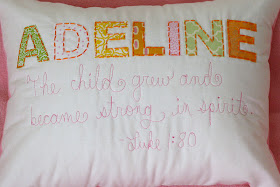 ADELINE
The child grew and
became strong in spirit.
-Luke 1:80